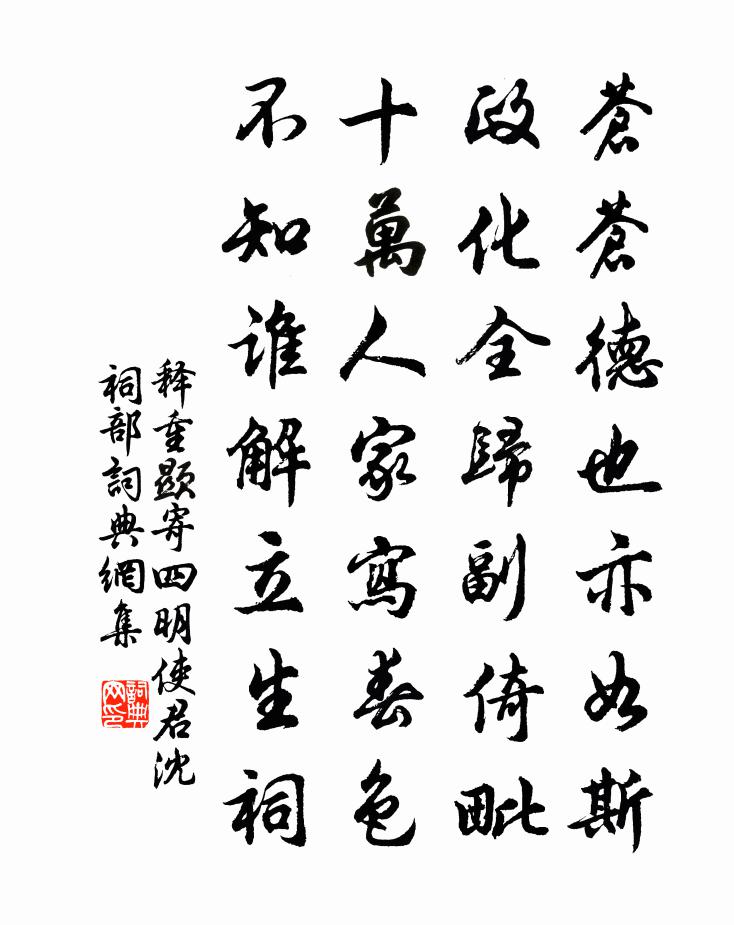 蒼蒼德也亦如斯
政化全歸副倚毗
十萬人家寫春色
不知誰解立生祠
释重顯寄四明使君沈
祠部詞典網集
詞典
网印